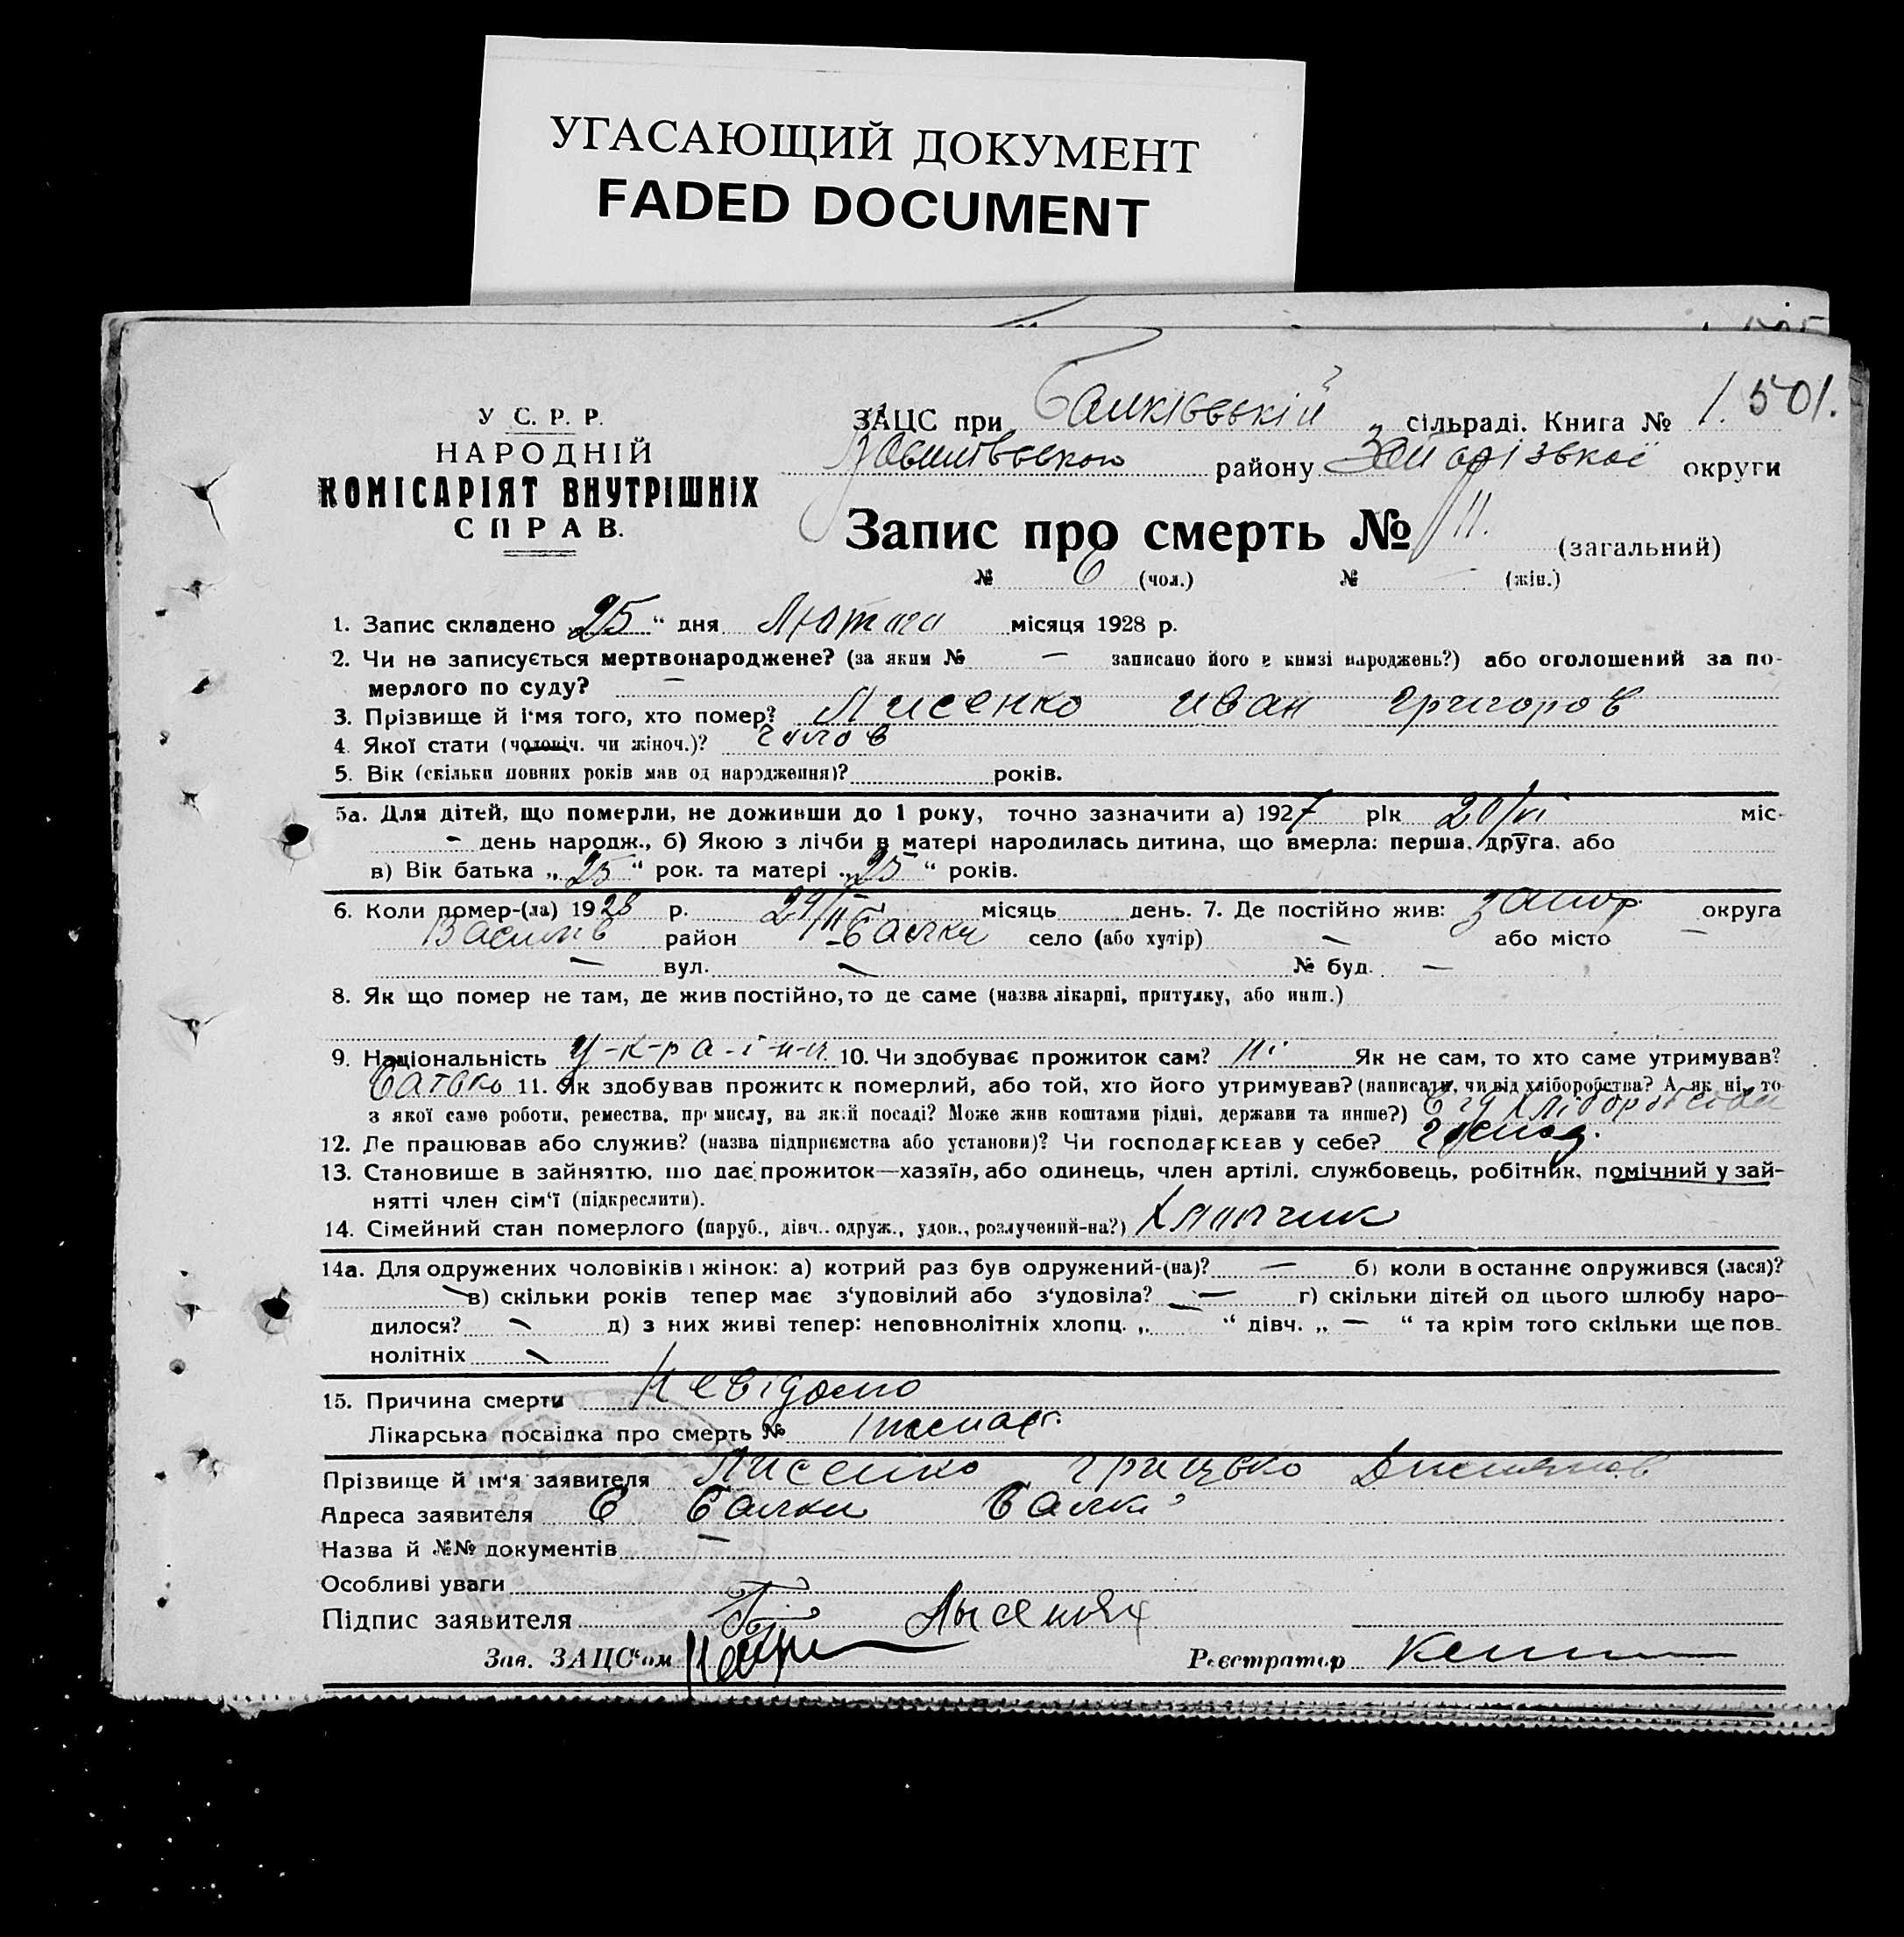 УГАСАЮЩИЙ ДОКУМЕНТ
FADED DOCUMENT
У С. Р. Р.
НАРОДНІЙ
КОМІСАРІЯТ ВНУТРІШНІХ
СПРАВ.
ЗАЦС при Балківській сільраді. Книга № 1. 501.
району Запорізької округи
Запис про смерть № 11. (загальний)
№ 6 (чол.) № — (жін.)
1. Запис складено „25“ дня Лютого місяця 1928 р.
2. Чи не записується мертвонароджене? (за яким № — записано його в книзі народжень?) або оголошений за по-
мерлого по суду? —
3. Прізвище й і'мя того, хто помер? Лисенко Иван Григоров
4. Якої стати (чоловіч. чи жіноч.)? чолов
5. Вік (скільки повних років мав од народження)? років.
5а. Для дітей, що померли, не доживши до 1 року, точно зазначити а) 1927 рік 20/VI міс-
- день народж., б) Якою з лічби в матері народилась дитина, що вмерла: перша, друга, або
в) Вік батька „25“ рок. та матері „25“ років.
6. Коли помер-(ла) 1928 р. 24/II місяць день. 7. Де постійно жив: Запор. округа
Василів район Балки село (або хутір) — або місто —
— вул. — № буд. —
8. Як що помер не там, де жив постійно, то де саме (назва лікарні, притулку, або инш.)
9. Національність У-к-р-а-ї-н-и 10. Чи здобуває прожиток сам? ні Як не сам, то хто саме утримував?
Батько 11. Як здобував прожиток померлий, або той, хто його утримував? (написати, чи від хліборобства? А як ні, то
з якої саме роботи, ремества, промислу, на якій посаді? Може жив коштами рідні, держави та инше?) від хліборобства
12. Де працював або служив? (назва підприємства або установи)? Чи господарював у себе? господ.
13. Становише в зайняттю, що дає прожиток—хазяїн, або одинець, член артілі, службовець, робітник, помічний у зай-
нятті член сім'ї (підкреслити).
14. Сімейний стан померлого (паруб., дівч., одруж., удов., розлучений-на?) Хлопчик
14а. Для одружених чоловіків і жінок: а) котрий раз був одружений-(на)? — б) коли в останнє одружився (лася)?
— в) скільки років тепер має з'удовілий або з'удовіла? — г) скільки дітей од цього шлюбу наро-
дилося? — д) з них живі тепер: неповнолітніх хлопц. „ “ дівч. „ — “ та крім того скільки ще пов-
нолітніх —
15. Причина смерти Невідомо
Лікарська посвідка про смерть №
Прізвище й ім'я заявителя Лисенко Грицько
Адреса заявителя С Балки Балки
Назва й №№ документів —
Особливі уваги
Підпис заявителя
Зав. ЗАЦС'ом Реєстратор